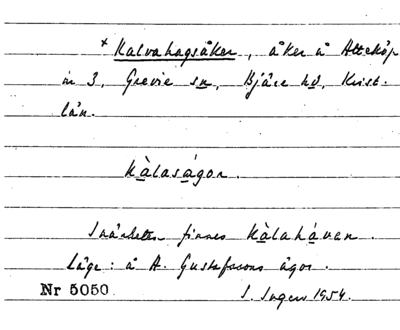 × Kalvahagsåker, åker å Atteköp
nr 3, Grevie sn, Bjäre hd, Krist.
län.
kàlaságor.
I närheten finnes kàlahávan.
Läge: å A. Gustafssons ägor.
Nr 5050 I. Ingers 1954.